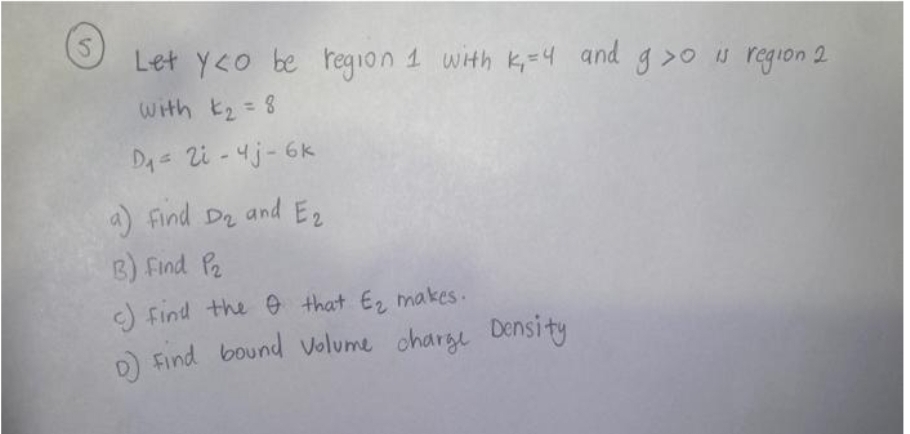 5
Let y<0 be region 1 with k₁=4 and y>0 is region 2
with k₂ = 8
D₁ = 2i - 4j - 6k
a) find D₂ and E₂
B) find P₂
c) find the θ that E₂ makes.
D) Find bound volume charge Density